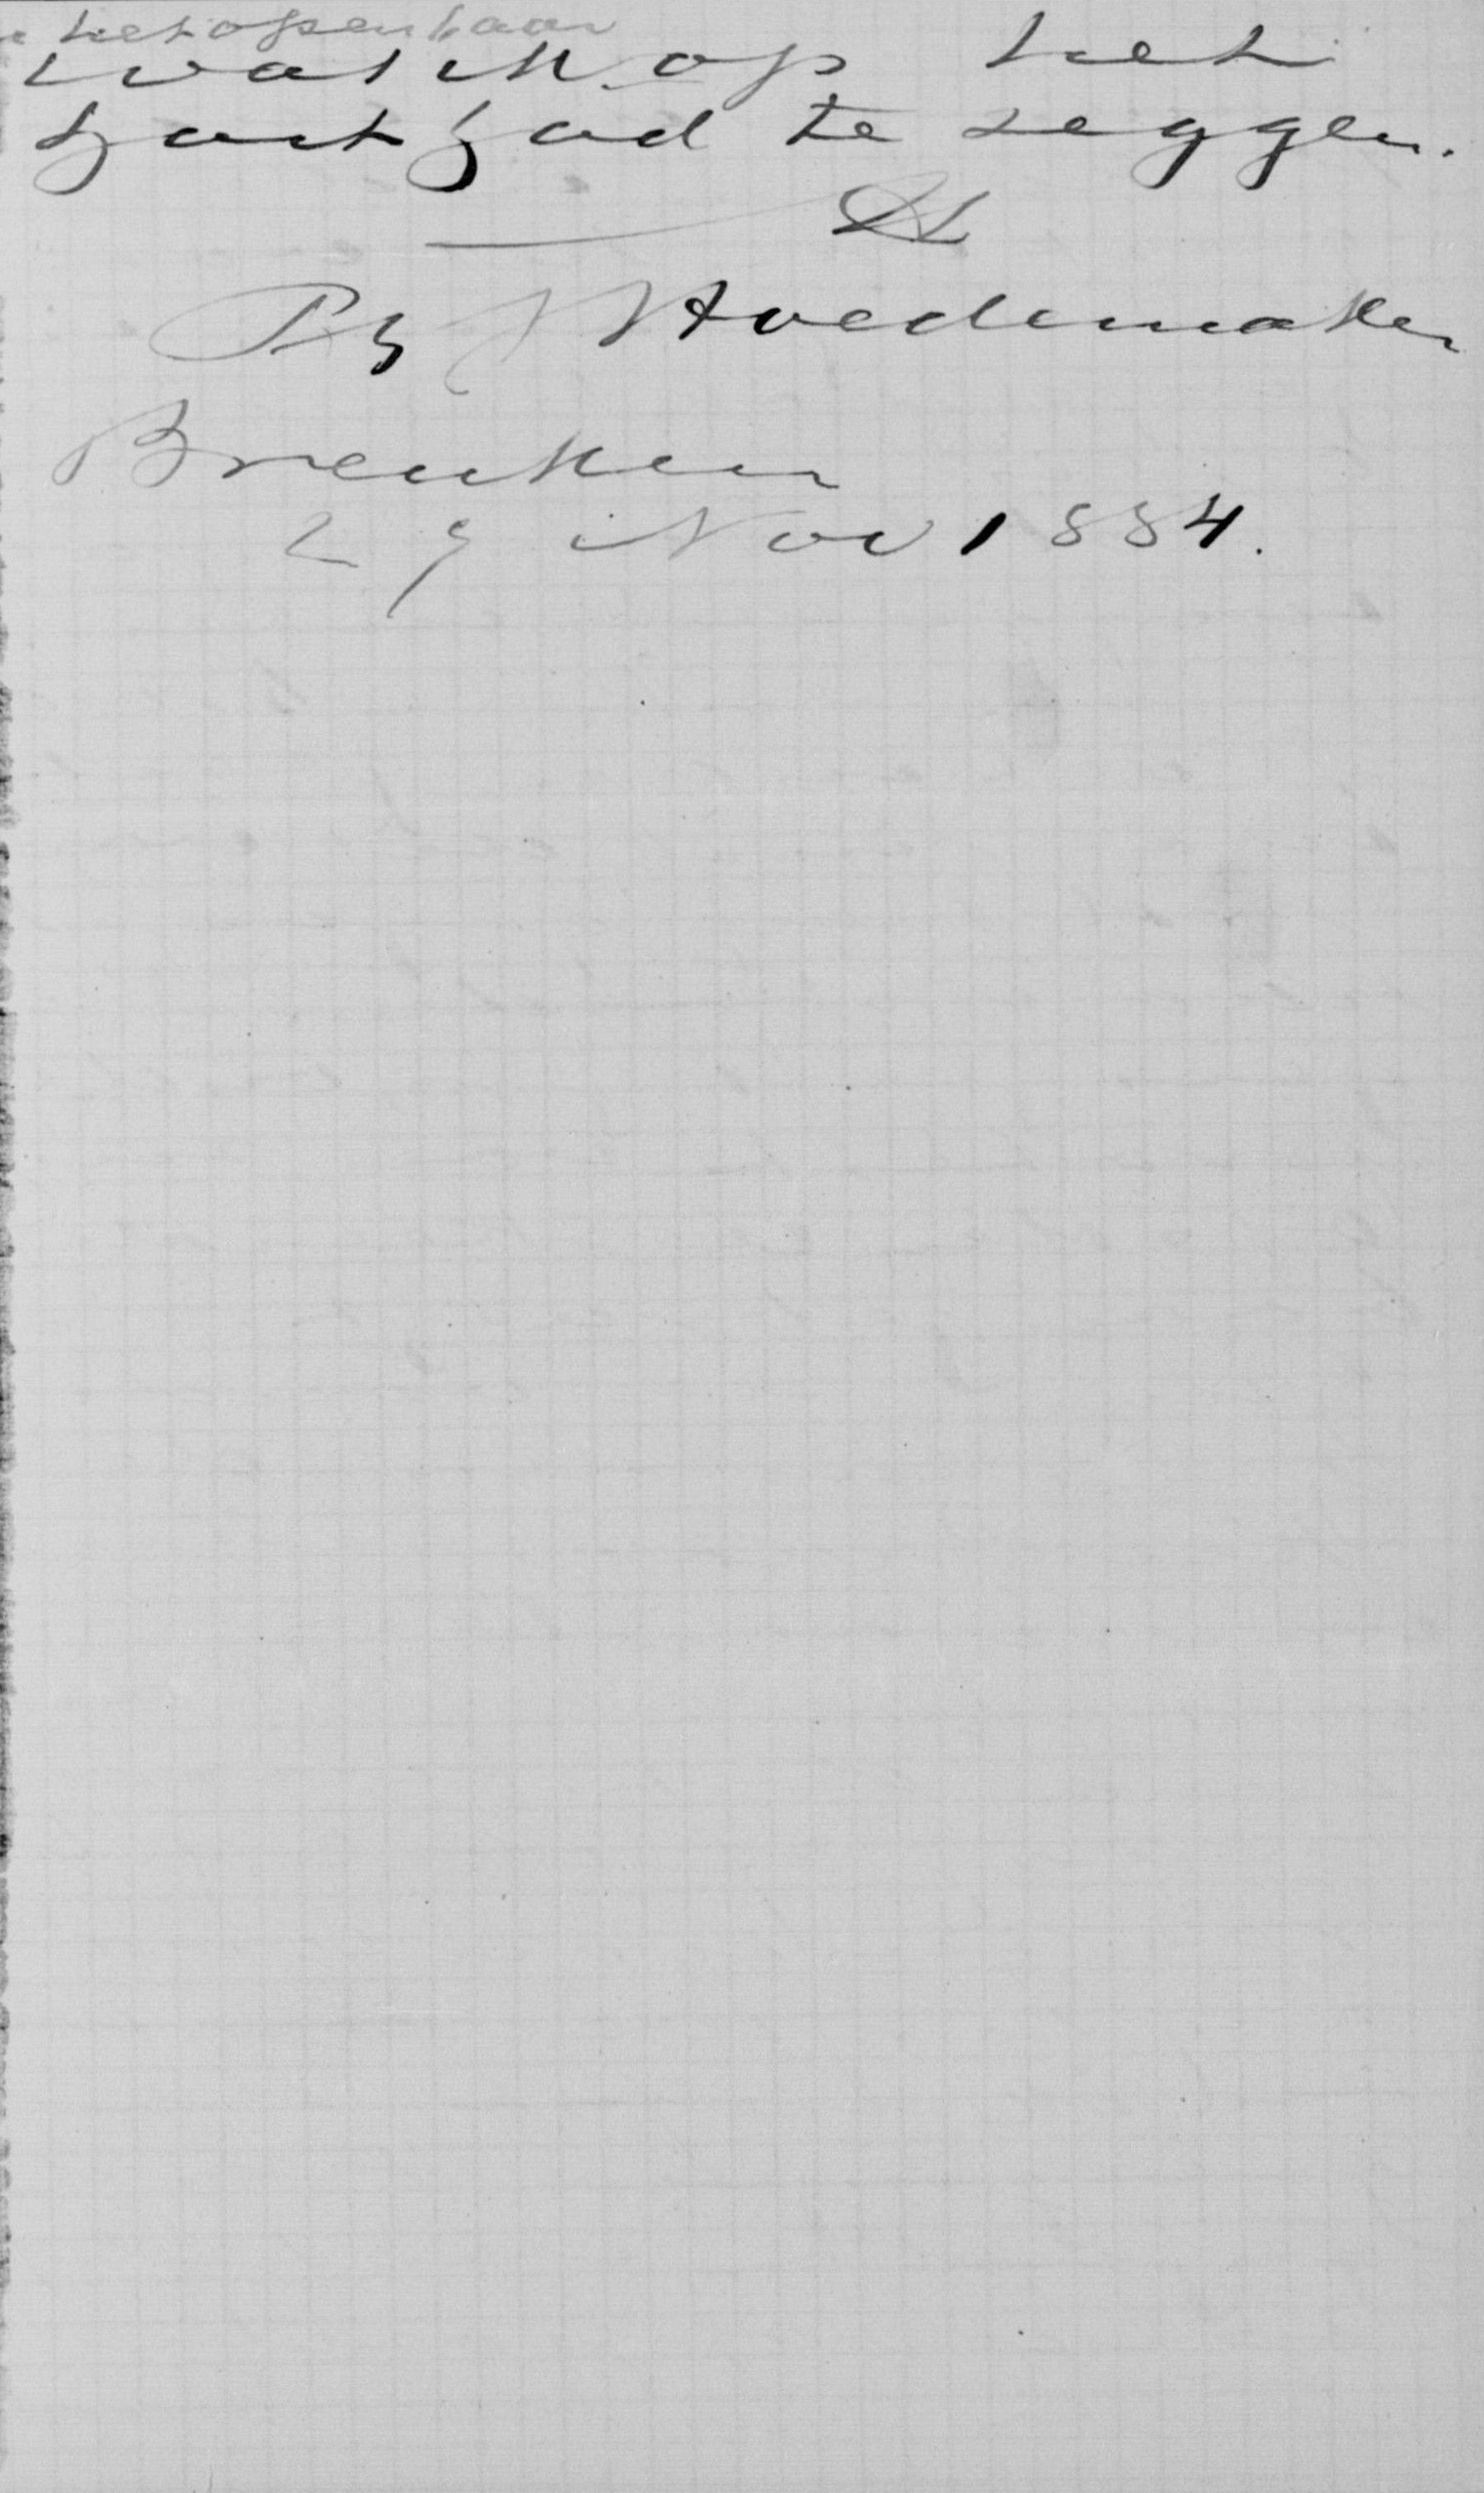 het openbaar
wat ik op het
hart had te zeggen.
H
Ph J Hoedemaker
Breukelen
29 Nov 1884.